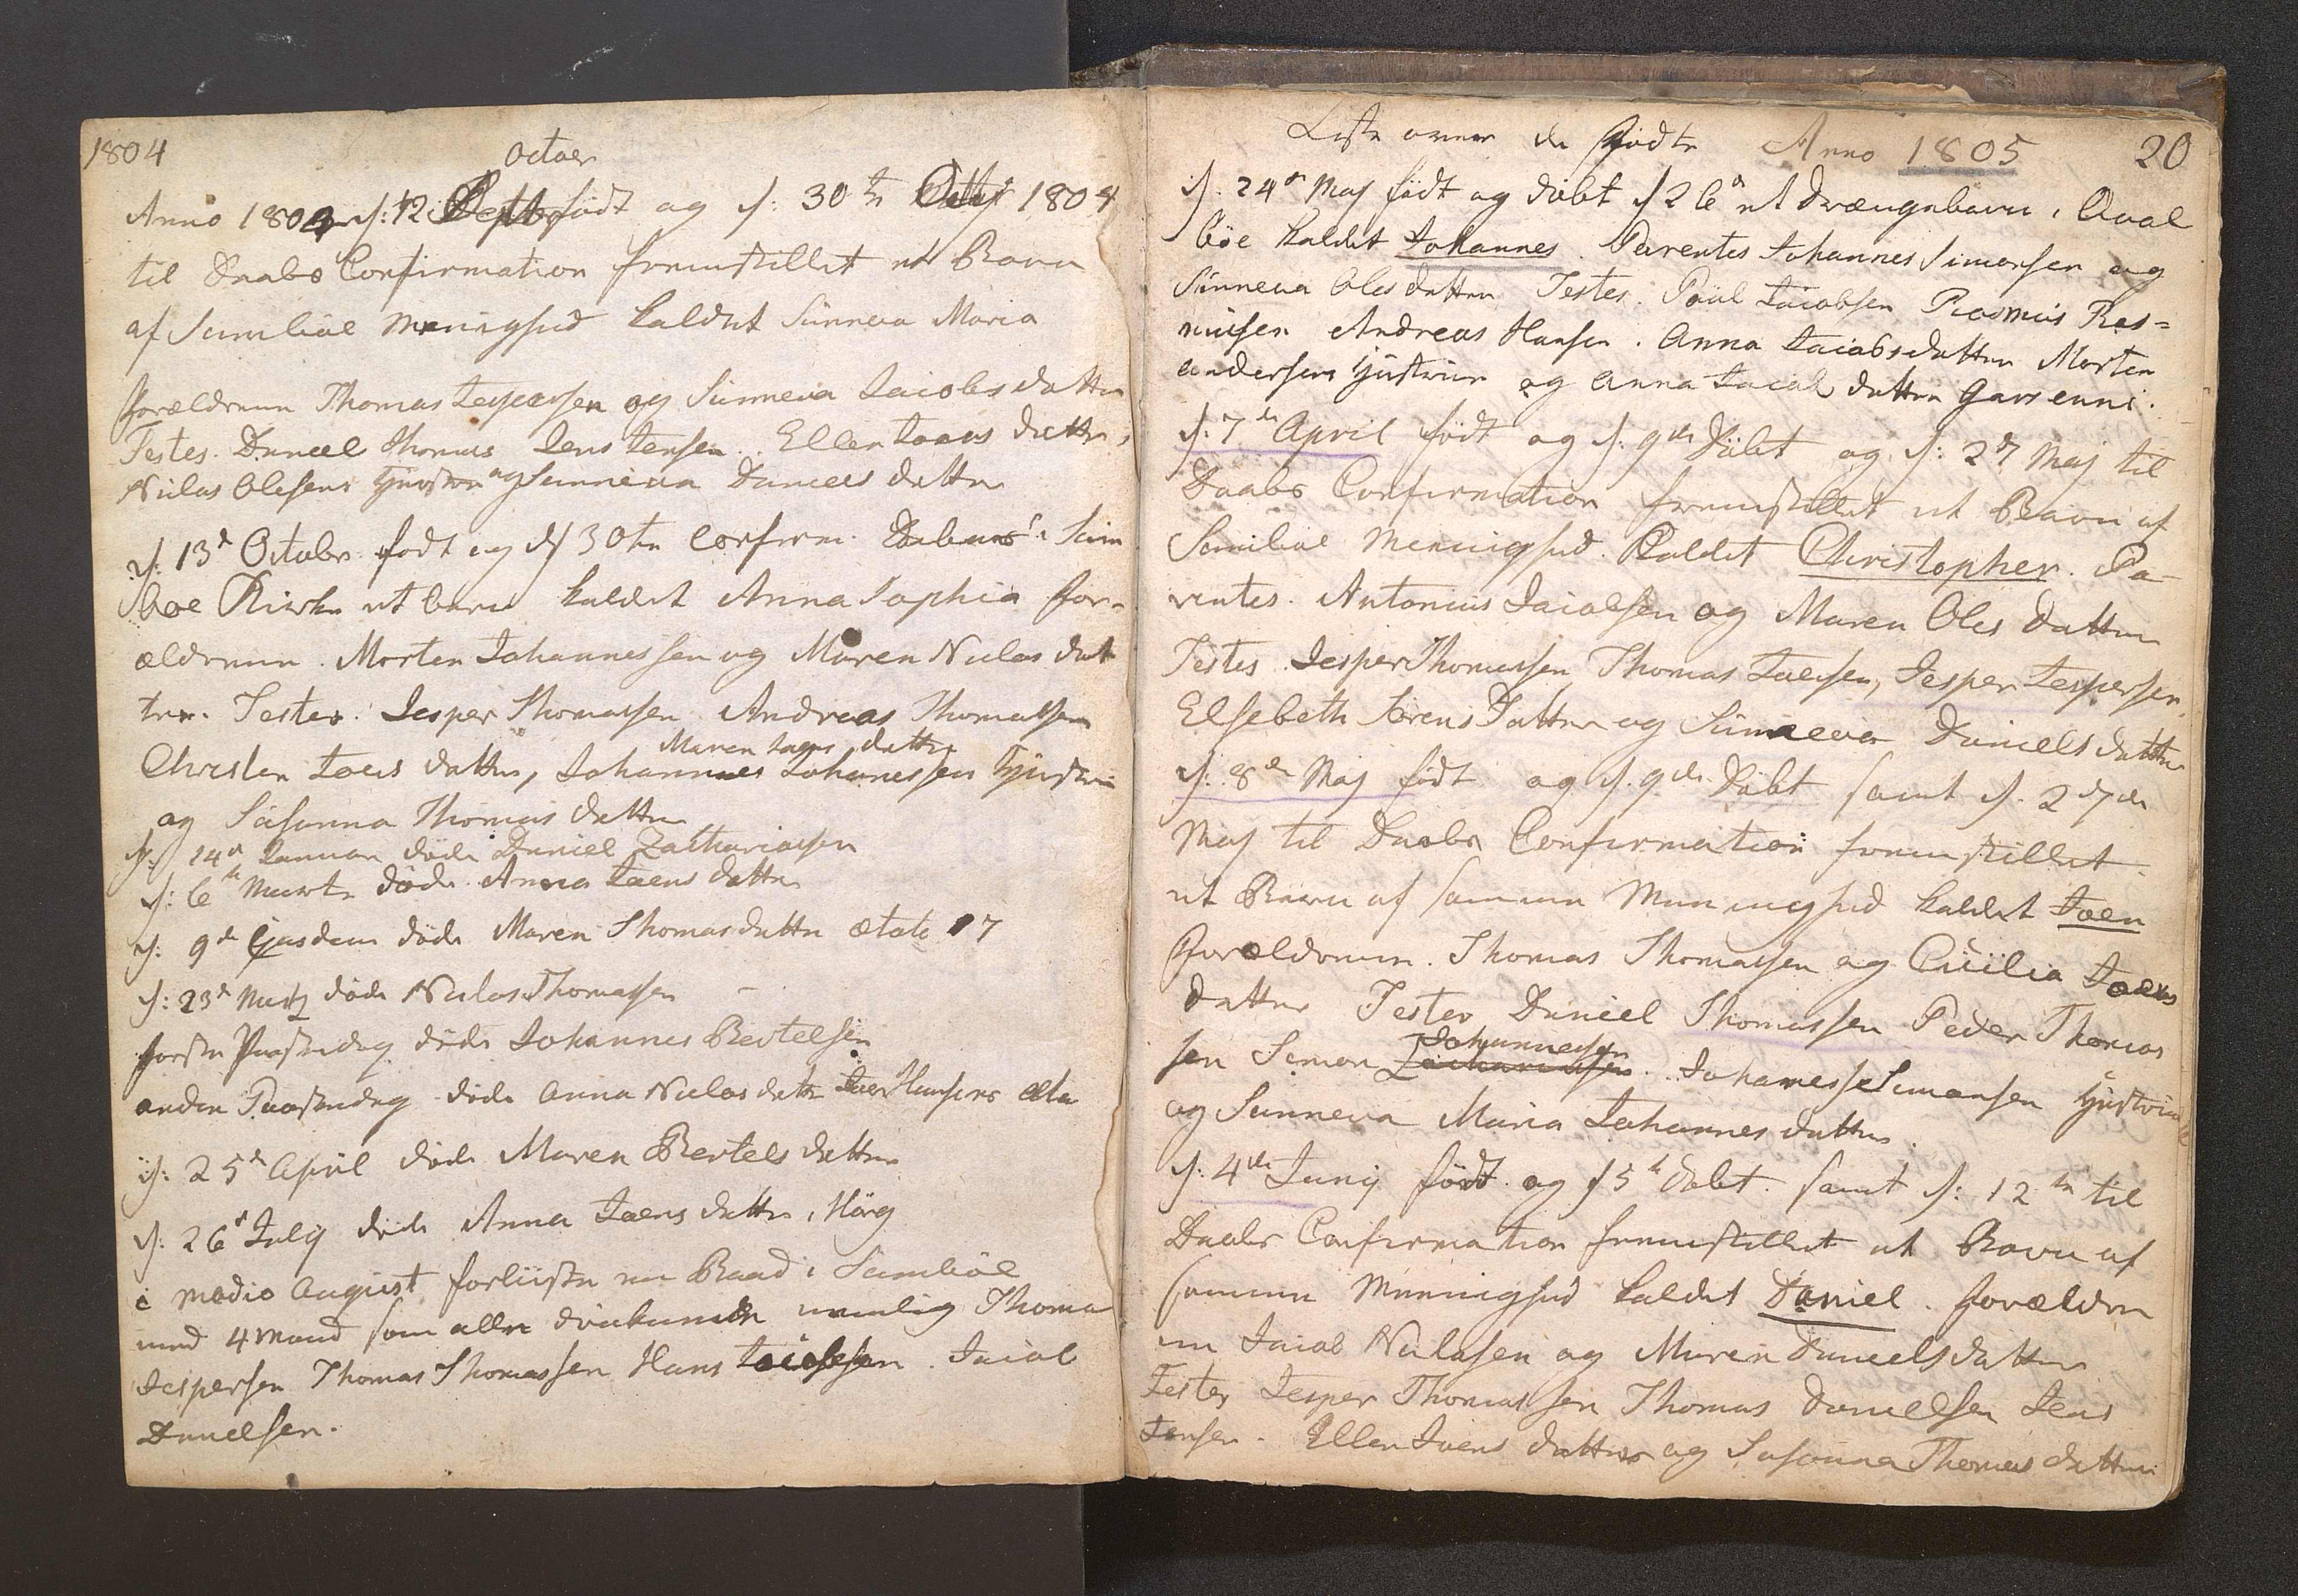 1804
Octoer
Anno 1804 d: 12 født og d: 30te 1804
til Daabs Confirmation fremstillet et Barn
af Sumbøe Meenighed kaldet Sünneva Maria
Forældrene Thomas Jespersen og Sünneva Jacobsdatter
Testes. Daniel Thomas Jens Jensen. Ellen Joens datter,
Niclas Olesens Hustrue og Sunneva Daniels datter
d: 13de Octobr født og d 30te confirm. i Sum
böe Kirke et barn kaldet Anna Sophia For-
ældrene. Morten Johannessen og Maren Niclas dat
ter. Testes. Jesper Thomassen Andreas Thomassen
Maren Joens datter
Christen Joens datter, Johannes Johanessens Hustrue
og Süsanna Thomas datter
d: 14de Januar döde Daniel Zachariassen
d: 6te Marts döde Anna Joens datter
d: 9de döde Maren Thomasdatter ætate 17
d: 23de Martz döde Niclas Thomassen
første Paaskedag döde Johannes Bertelsen
anden Paaskedag döde Anna Niclasdatter Joen Hansens
d: 25de April döde Maren Bertels datter
d: 26de Julij döde Anna Joens datter i Hörg
i medio August forliiste en Baad i Sumböe
med 4 Mand som alle druknede nemlig Thomas
Jespersen Thomas Thomassen Hans Jacobsen. Jacob
Danielsen.
Liste over de Fødte Anno 1805 20
d: 24de Maj född og döbt d 26de et Drængebarn i Qval
böe kaldet Johannes. Parentes Johannes Simonsen og
Sünneva Olesdatter Testes. Poul Jacobsen Rasmus Ras=
mussen Andreas Hansen. Anna Jacobsdatter Morten
Andersens Hustrue og Anna Jacobsdatter
d: 7de April födt og d: 9de Döbt og d: 27 Maj til
Daabs Confirmation fremstillet et Barn af
Sumböe Meenighed. Kaldet Christopher. Pa-
rentes. Antonius Jacobsen og Maren Oles datter
Testes Jesper Thomassen Thomas Joensen, Jesper Jespersen,
Elsebeth Sörens Datter og Sünneva Daniels datter
d: 8de Maj födt og d. 9de Döbt samt d. 27de
Maj til Daabs Confirmation fremstillet
et Barn af samme Meenighed kaldet Joen
Forældrene. Thomas Thomassen og Cicilia Joens
datter Testes Daniel Thomassen Peder Thomas
Johannessen
sen Simon Zachariassen. Johanes Simonsens Hustrue
og Sunneva Maria Johannesdatter.
d: 4de Junij födt og d 5te Döbt. samt d: 12te til
Daabs Confirmation fremstillet et Barn af
samme Meenighed kaldet Daniel. Forældre
ne Jacob Niclasen og Maren Danielsdatter
Testes Jesper Thomassen Thomas Danielsen Jens
Jensen. Ellen Joens datter og Susanna Thomas datter